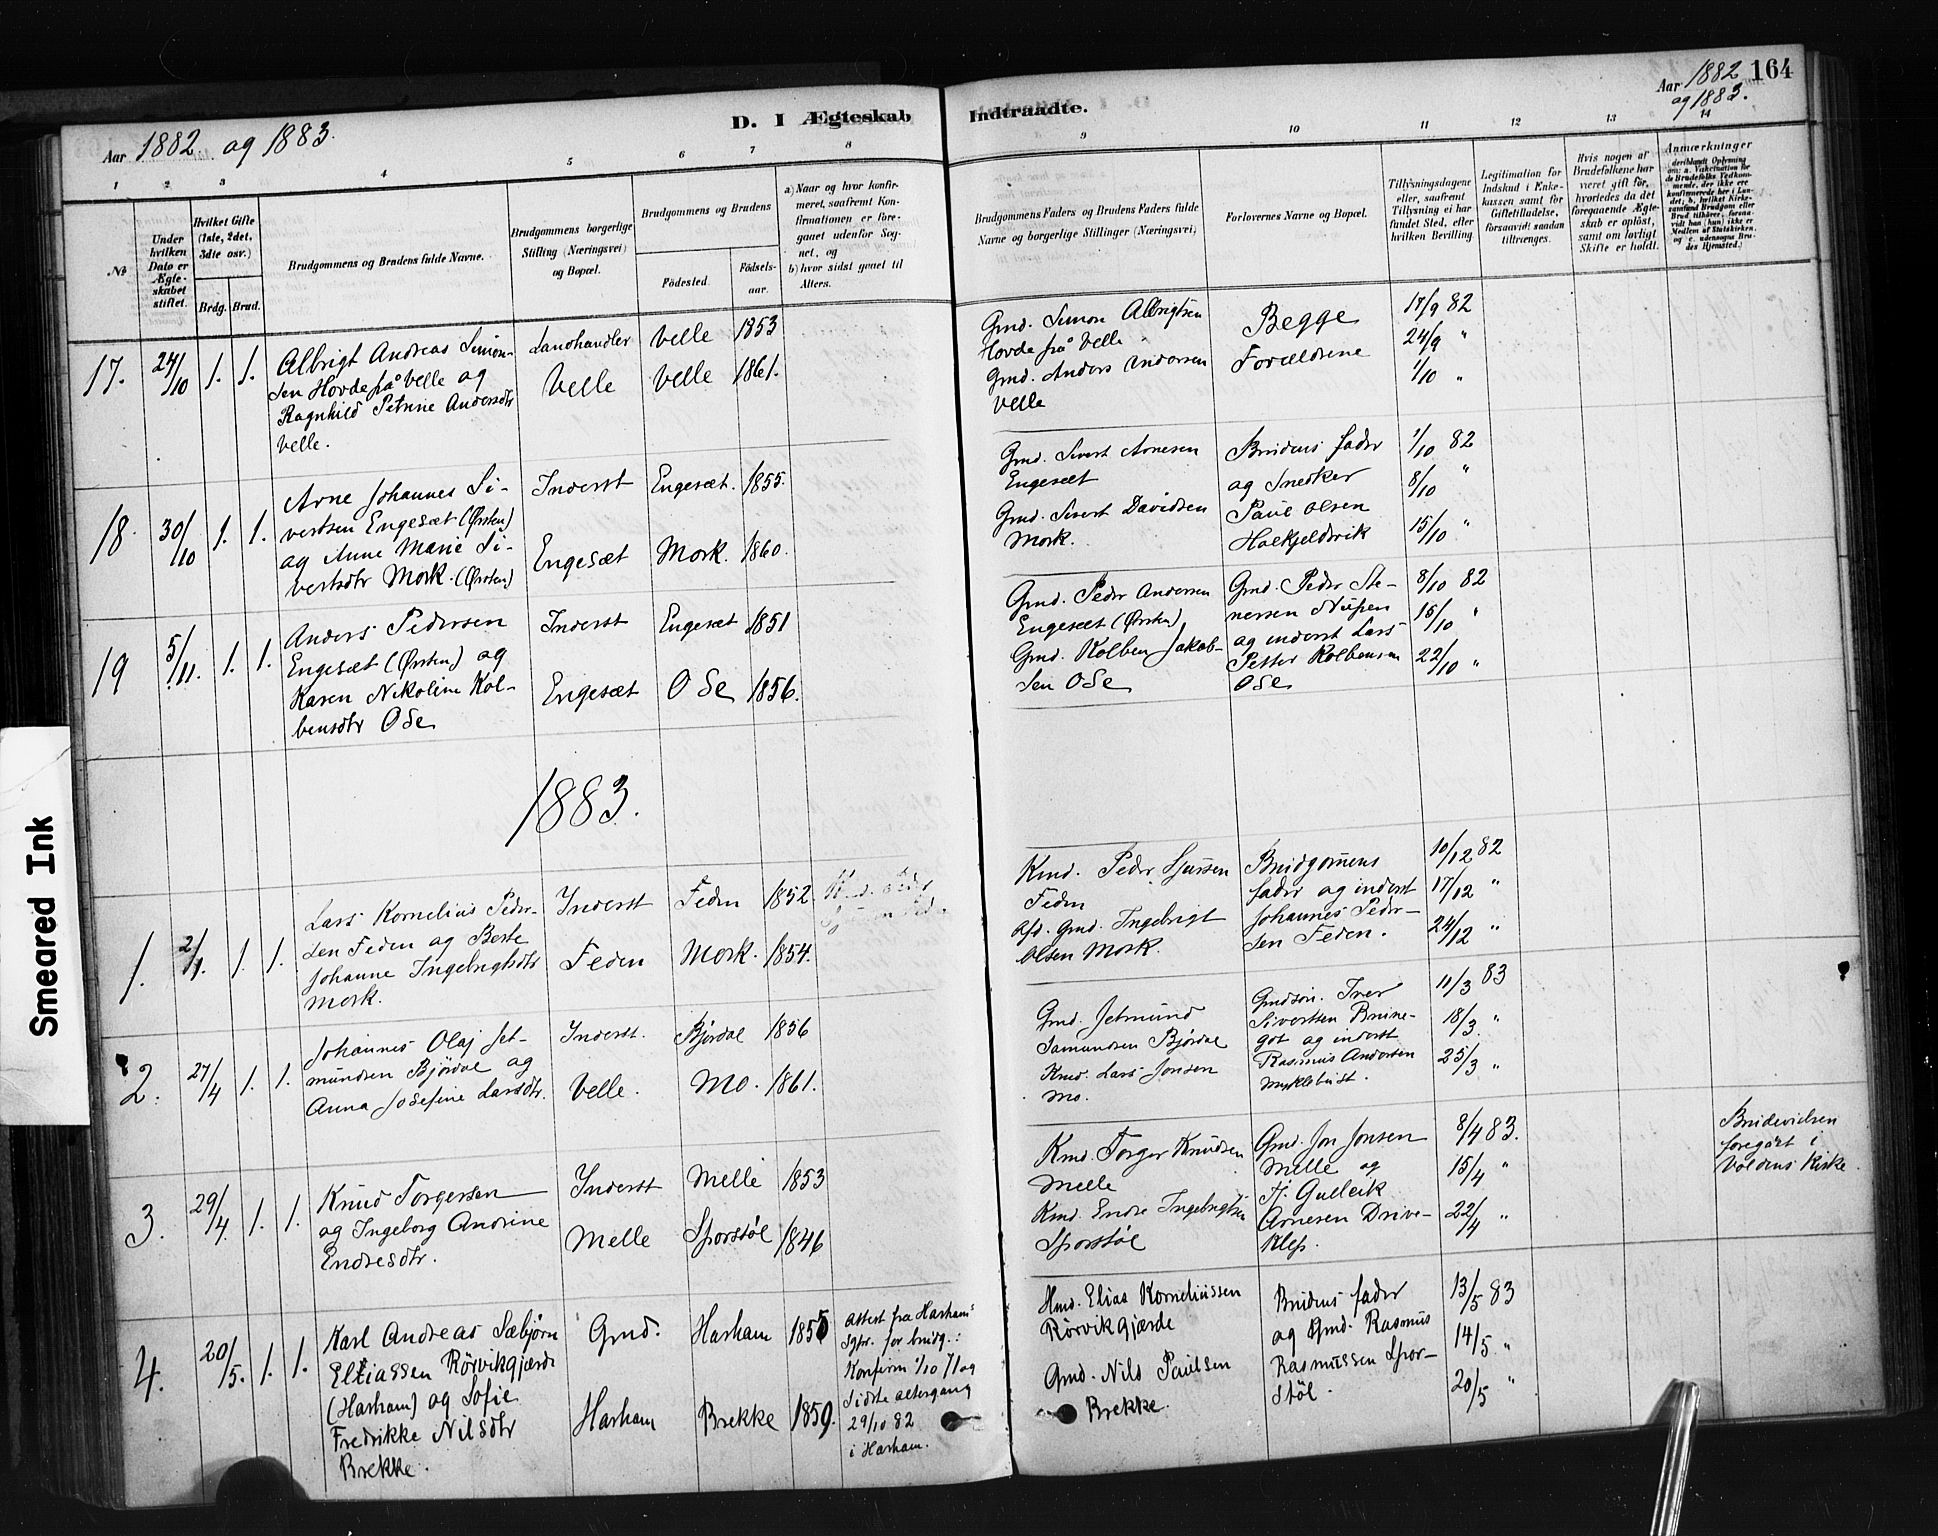 Smeared Ink
Aar 1882 og 1883.
D. I Ægteskab
Indtraadte.
Aar 1882
og 1883.
164
1 2 3 4 5 6 7 8
9 10 11 12 13 14
No
Under hvilken Dato er Ægteskabet stiftet.
Hvilket Gifte (1ste, 2det, 3die osv.)
Brdg. Brud.
Brudgommens og Brudens fulde Navne.
Brudgommens borgerlige Stilling (Næringsvei) og Bopæl.
Brudgommens og Brudens
Fødested. Fødselsaar.
a) Naar og hvor konfirmeret, saafremt Konfirmationen er foregaaet udenfor Sognet, og
b) hvor sidst gaaet til Alters.
Brudgommens Faders og Brudens Faders fulde Navne og borgerlige Stillinger (Næringsvei)
Forlovernes Navne og Bopæl.
Tillysningsdagene eller, saafremt Tillysning ei har fundet Sted, efter hvilken Bevilling
Legitimation for Indskud i Enkekassen samt for Giftetilladelse, forsaavidt saadan tiltrenges.
Hvis nogen af Brudefolkene har været gift før, hvorledes da det foregaaende Ægteskab er opløst, samt om lovligt Skifte er holdt.
Anmærkninger
17. 24/10 1. 1.
Albrigt Andreas Simon-
sen Hovde på Velle og
Ragnhild Petrine Andersdtr
Velle.
Landhandler Velle 1853
Velle Velle 1861.
Grmd. Simon Albrigtsen
Hovde på Velle
Grmd. Anders Andersen
Velle
Begge
Forældrene
17/9 82
24/9 "
1/10 "
18. 30/10 1. 1.
Arne Johannes Si-
vertsen Engesæt (Ørsten)
og Anne Marie Si-
vertsdtr Mork. (Ørsten)
Inderst Engesæt. 1855.
Engesæt Mork. 1860.
Grmd. Sivert Arnesen
Engesæt
Grmd. Sivert Davidsen
Mork.
Brudens fader
og Snedker
Paul Olsen
1/10 82
8/10 "
15/10 "
19 5/11. 1. 1.
Anders Pedersen
Engesæt (Ørsten) og
Karen Nikoline Kol-
bensdtr Ose
Inderst Engesæt 1851
Engesæt Ose 1856.
Grmd. Peder Andersen
Engesæt (Ørsten)
Grmd. Kolben Jakob-
sen Ose
Grmd. Peder Ste-
nersen Nupen
og inderst Lars
Petter Kolbensen
Ose
8/10 82
15/10 "
22/10 "
1883.
1. 2/1. 1. 1.
Lars Kornelius Peder-
sen Feden og Berte
Johanne Ingebrigtsdtr
Mork.
Inderst Feden 1852
Feden Mork. 1854.
Kmd. Peder Sjursen
Feden
Afd. Grmd. Ingebrigt
Olsen Mork.
Brudgomens
fader og inderst
Johannes Peder-
sen Feden.
10/12 82
17/12 "
24/12 "
2. 27/4 1. 1.
Johannes Olaj Jet-
mundsen Bjørdal og
Anna Josefine Larsdtr.
Inderst. Bjørdal 1856
Velle. Mo. 1861.
Grmd. Jetmund
Samundsen Bjørdal
Kmd. Lars Jonsen
Mo.
Grmdsøn. Iver
Sivertsen Brune-
got og inderst
Rasmus Andersen
Myklebust.
11/3 83
18/3 "
25/3 "
3. 29/4. 1. 1.
Knud Torgersen
og Ingeborg Andrine
Endresdtr.
Inderst Melle 1853
Melle Sporstøl 1846
Kmd. Torger Knudsen
Melle
Kmd. Endre Ingebrigtsen
Sporstøl
Grmd. Jon Jonsen
Melle og
Tj. Gulleik
Arnesen Drive-
klep.
8/4 83.
15/4 "
22/4 "
Brudevielsen
foregået i
Voldens Kirke.
4. 20/5. 1. 1.
Karl Andreas Sæbjørn
Eliassen Rörvikgjærde
(Harham) og Sofie
Fredrikke Nilsdtr
Brekke.
Grmd. Harham 1855
Harham Brekke 1859.
Attest fra Harhams
Sgpr. for brudg.:
Konfirm 1/10 71 og
sidste altergang
29/10 82
i Harham.
Hmd. Elias Korneliussen
Rörvikgjærde
Grmd. Nils Paulsen
Brekke.
Brudens fader
og Grmd. Rasmus
Rasmussen Spor-
støl.
13/5 83
14/5 "
20/5 "